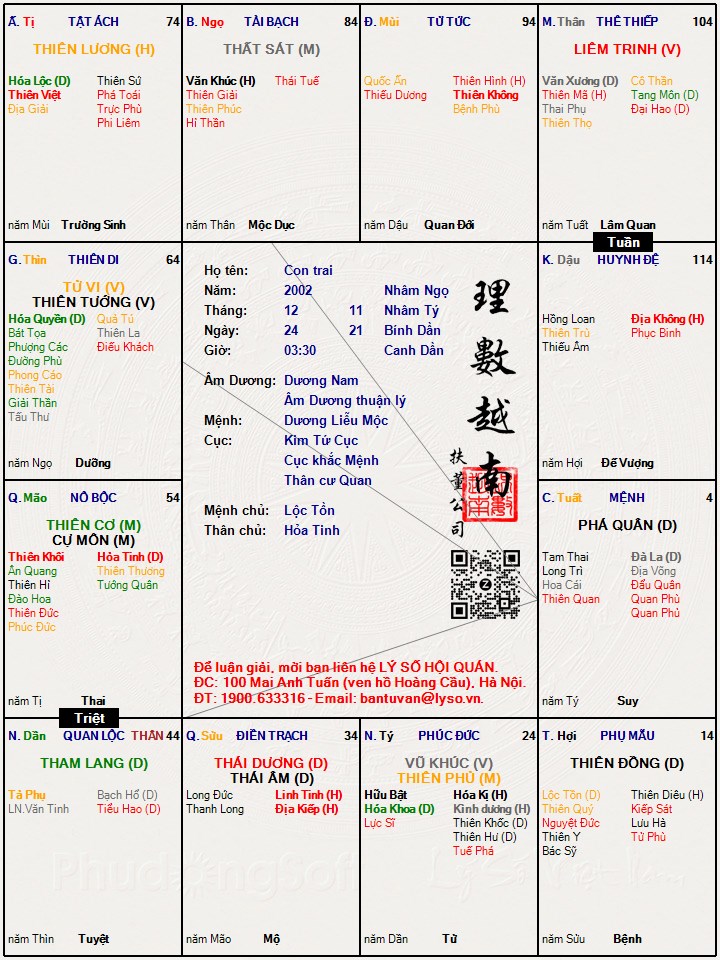 Ất. Tị TẬT ÁCH 74
THIÊN LƯƠNG (H)
Hóa Lộc (D) Thiên Sứ
Thiên Việt Phá Toái
Địa Giải Trực Phù
Phi Liêm
năm Mùi Trường Sinh
B. Ngọ TÀI BẠCH 84
THẤT SÁT (M)
Văn Khúc (H) Thái Tuế
Thiên Giải
Thiên Phúc
Hỉ Thần
năm Thân Mộc Dục
Đ. Mùi TỬ TỨC 94
Quốc Ấn Thiên Hình (H)
Thiếu Dương Thiên Không
Bệnh Phù
năm Dậu Quan Đới
M. Thân THÊ THIẾP 104
LIÊM TRINH (V)
Văn Xương (D) Cô Thần
Thiên Mã (H) Tang Môn (D)
Thai Phụ Đại Hao (D)
Thiên Thọ
năm Tuất Lâm Quan
Tuần
G. Thìn THIÊN DI 64
TỬ VI (V)
THIÊN TƯỚNG (V)
Hóa Quyền (D) Quả Tú
Bát Tọa Thiên La
Phượng Các Điếu Khách
Đường Phù
Phong Cáo
Thiên Tài
Giải Thần
Tấu Thư
năm Ngọ Dưỡng
Họ tên: Con trai
Năm: 2002 Nhâm Ngọ
Tháng: 12 11 Nhâm Tý
Ngày: 24 21 Bính Dần
Giờ: 03:30 Canh Dần
Âm Dương: Dương Nam
Âm Dương thuận lý
Mệnh: Dương Liễu Mộc
Cục: Kim Tứ Cục
Cục khắc Mệnh
Thân cư Quan
Mệnh chủ: Lộc Tồn
Thân chủ: Hỏa Tinh
理數越南
扶董公司
Để luận giải, mời bạn liên hệ LÝ SỐ HỘI QUÁN.
ĐC: 100 Mai Anh Tuấn (ven hồ Hoàng Cầu), Hà Nội.
ĐT: 1900.633316 - Email: bantuvan@lyso.vn.
K. Dậu HUYNH ĐỆ 114
Hồng Loan Địa Không (H)
Thiên Trù Phục Binh
Thiếu Âm
năm Hợi Đế Vượng
Q. Mão NÔ BỘC 54
THIÊN CƠ (M)
CỰ MÔN (M)
Thiên Khôi Hỏa Tinh (D)
Ân Quang Thiên Thương
Thiên Hỉ Tướng Quân
Đào Hoa
Thiên Đức
Phúc Đức
năm Tị Thai
Triệt
C. Tuất MỆNH 4
PHÁ QUÂN (D)
Tam Thai Đà La (D)
Long Trì Địa Võng
Hoa Cái Đẩu Quân
Thiên Quan Quan Phù
Quan Phủ
năm Tý Suy
N. Dần QUAN LỘC THÂN 44
THAM LANG (D)
Tả Phụ Bạch Hổ (D)
LN.Văn Tinh Tiểu Hao (D)
năm Thìn Tuyệt
Q. Sửu ĐIỀN TRẠCH 34
THÁI DƯƠNG (D)
THÁI ÂM (D)
Long Đức Linh Tinh (H)
Thanh Long Địa Kiếp (H)
năm Mão Mộ
N. Tý PHÚC ĐỨC 24
VŨ KHÚC (V)
THIÊN PHỦ (M)
Hữu Bật Hóa Kị (H)
Hóa Khoa (D) Kình dương (H)
Lực Sĩ Thiên Khốc (D)
Thiên Hư (D)
Tuế Phá
năm Dần Tử
T. Hợi PHỤ MẪU 14
THIÊN ĐỒNG (D)
Lộc Tồn (D) Thiên Diêu (H)
Thiên Quý Kiếp Sát
Nguyệt Đức Lưu Hà
Thiên Y Tử Phù
Bác Sỹ
năm Sửu Bệnh